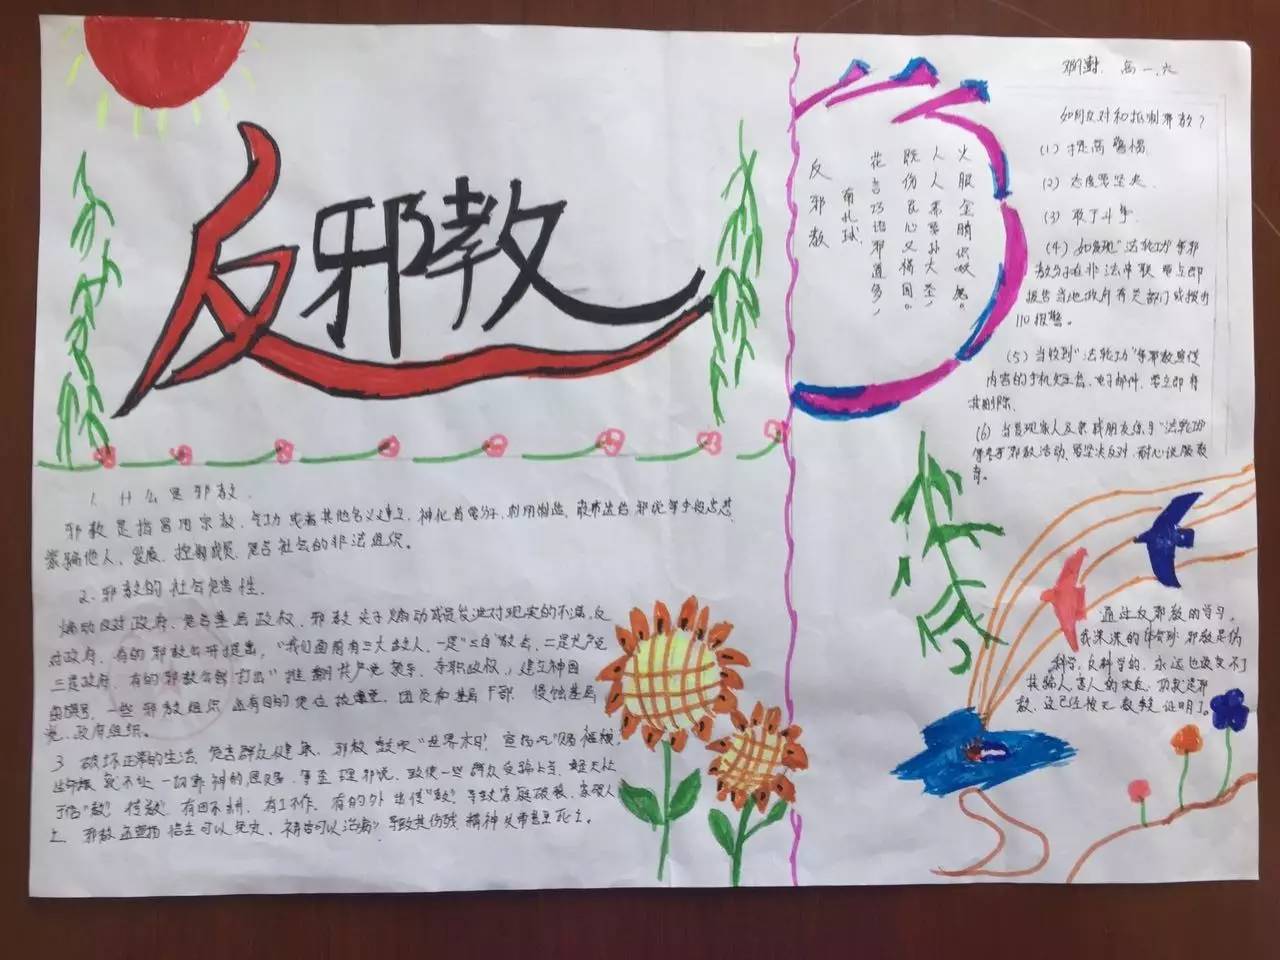 反邪教
1. 什么是邪教.
邪教是指冒用宗教、气功或者其他名义建立、神化首要分子、利用制造、散布迷信邪说等手段蛊惑、
蒙骗他人、发展、控制成员、危害社会的非法组织。
2. 邪教的社会危害性.
煽动反对政府、危害基层政权、邪教头子煽动成员发泄对现实的不满、反
对政府、有的邪教公开提出,"我们面前有三大敌人,一是"三自"教会、二是共产党
三是政府 有的邪教公然打出"推翻共产党 夺职政权,建立神国
的旗号、一些邪教组织 还有目的地位拉党 团员和基层干部、侵蚀基层
党、政府组织。
3 破坏正常的生活、危害群众健康、邪教鼓吹"世界末日" 宣扬 "赐福禳
我不处 一切靠神的恩赐,等歪理邪说、致使一些群众受骗上当、整天忙
于信"教" 传教"、有田不耕、有工不作、有的外出传"教" 导致家庭破裂、家破人
亡 邪教 信主可以免灾、祷告可以治病" 导致其伤残 精神失常甚至死亡。
反邪教
花言巧语邪道多,
既伤良心又祸国。
人人要学孙大圣,
火眼金睛识妖魔。
高一、六
如何反对和抵制邪教?
(1) 提高警惕
(2) 态度要坚决
(3) 敢于斗争
(4) 如发现"法轮功"等邪
教分子在非法串联 要立即
报告当地政府有关部门或拨打
110报警。
(5) 当收到"法轮功"等邪教宣传
内容的手机短信、电子邮件、要立即将
其删除
(6) 当发现家人及亲戚朋友参与"法轮功"
等邪教活动、要坚决反对、耐心说服教
育。
通过反邪教的学习、
我深深的体会到 邪教是伪
科学、反科学的、永远也改变不了
其骗人害人的实质、邪教就是邪
教、这已经被无数事实证明了。